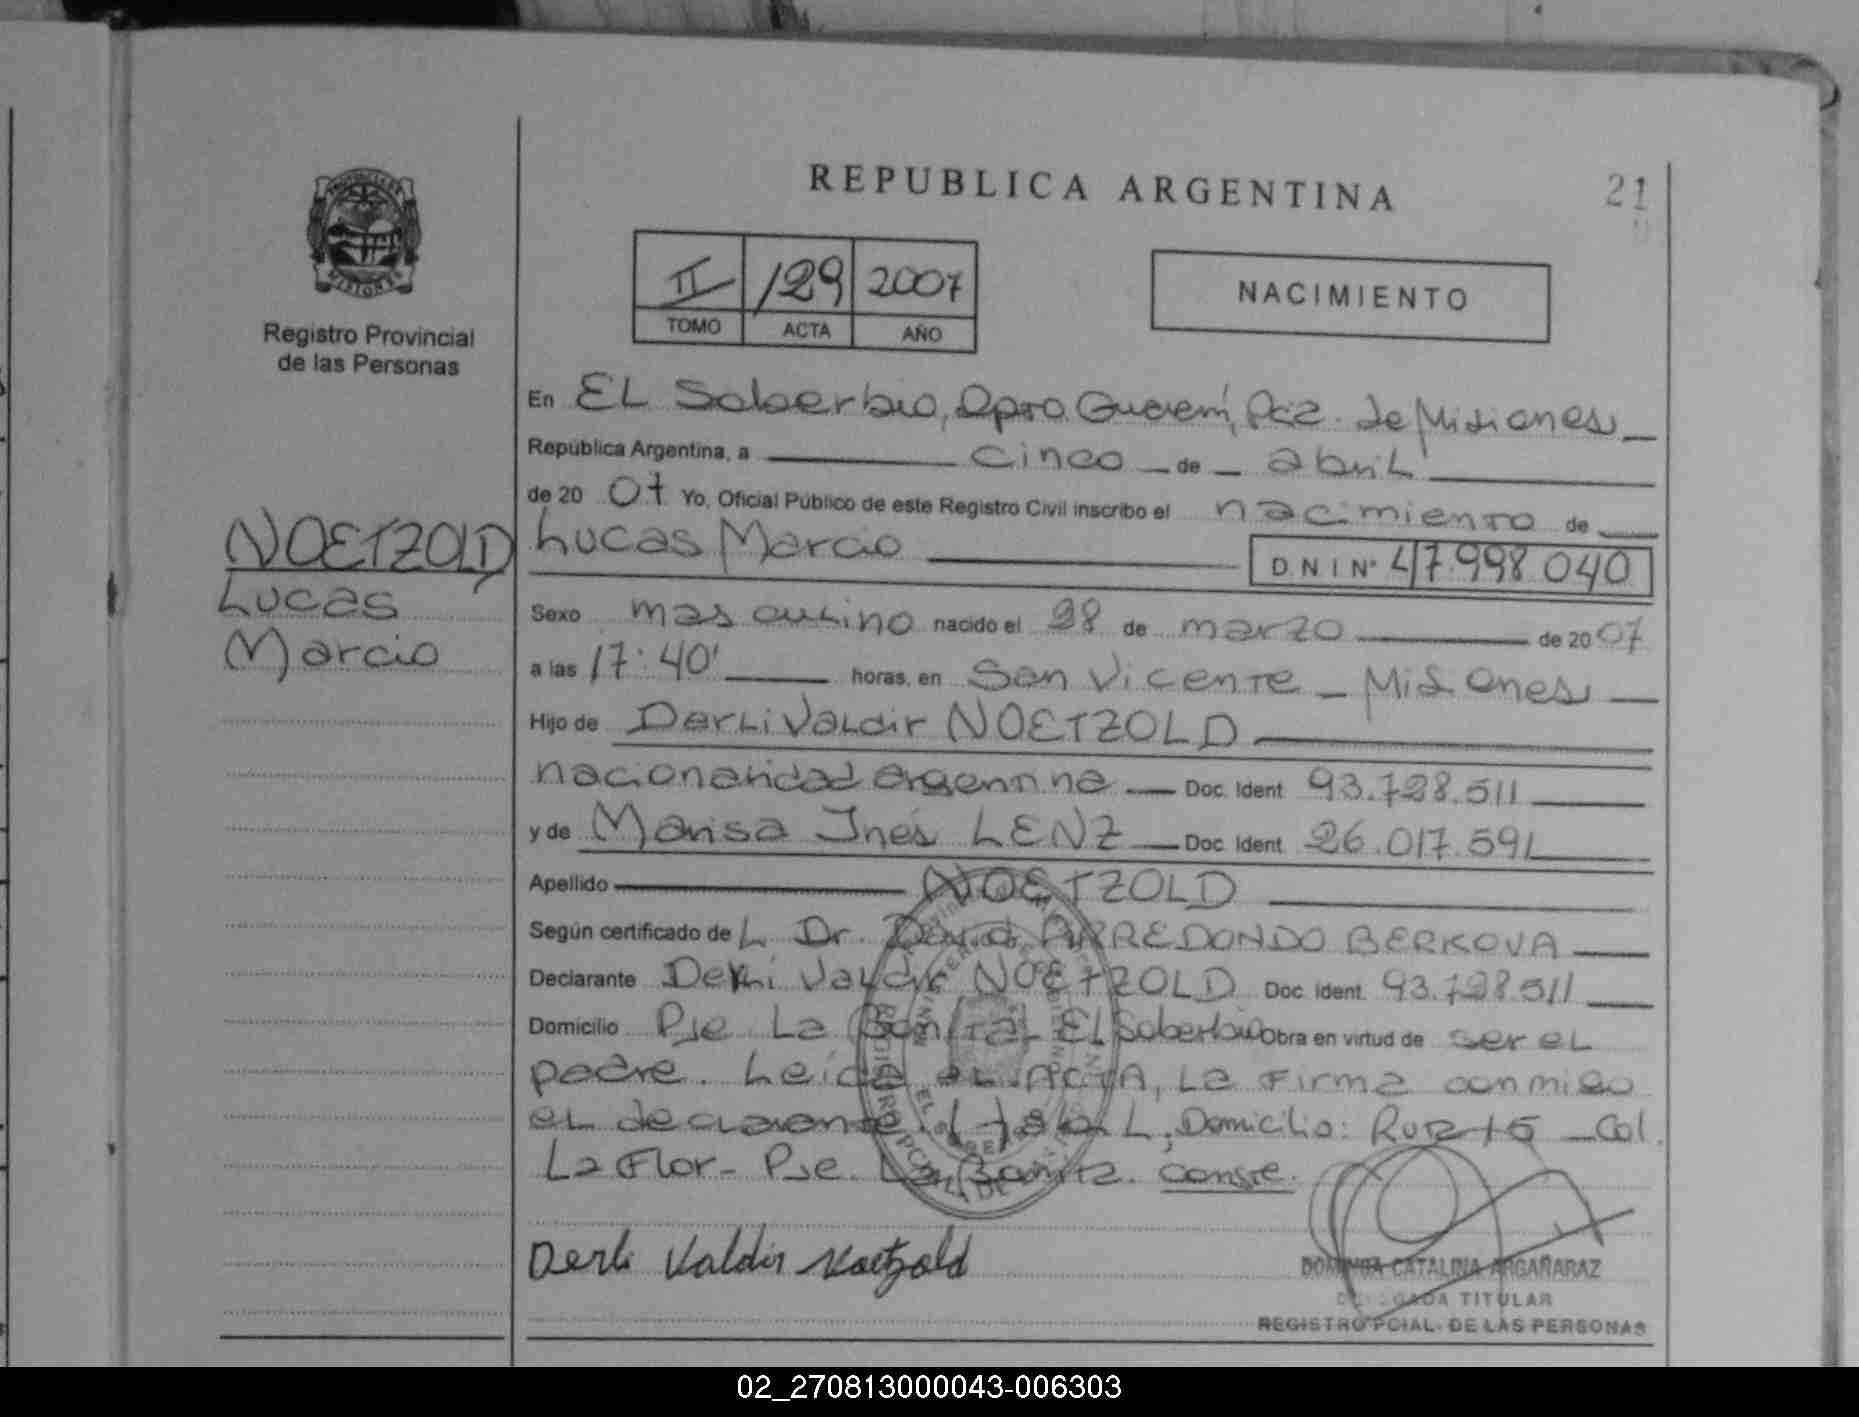 REPUBLICA ARGENTINA
21
Registro Provincial
de las Personas
II 129 2007
TOMO ACTA AÑO
NACIMIENTO
En EL Soberbio, Dpto. Guaraní, Pcia. de Misiones
República Argentina, a cinco de abril
de 2007 Yo, Oficial Público de este Registro Civil inscribo el nacimiento de
Lucas Marcio D.N.I Nº 47.998.040
NOETZOLD
Lucas
Marcio
Sexo masculino nacido el 28 de marzo de 2007
a las 17:40' horas, en San Vicente - Misiones
Hijo de Derli Valdir NOETZOLD
nacionalidad argentina Doc. Ident 93.728.511
y de Marisa Inés LENZ Doc. Ident 26.017.591
Apellido NOETZOLD
Según certificado de L. Dr. David ARREDONDO BERKOVA
Declarante Derli Valdir NOETZOLD Doc. Ident. 93.728.511
Domicilio Pje La Bonita - El Soberbio Obra en virtud de ser el
padre. Leída el ACTA, la firma conmigo
el declarante. Domicilio: Ruta 15 - Col.
La Flor - Pje. La Bonita. Conste.
Derli Valdir Noetzold
DOMINGA CATALINA ARGAÑARAZ
DELEGADA TITULAR
REGISTRO PCIAL. DE LAS PERSONAS
02_270813000043-006303